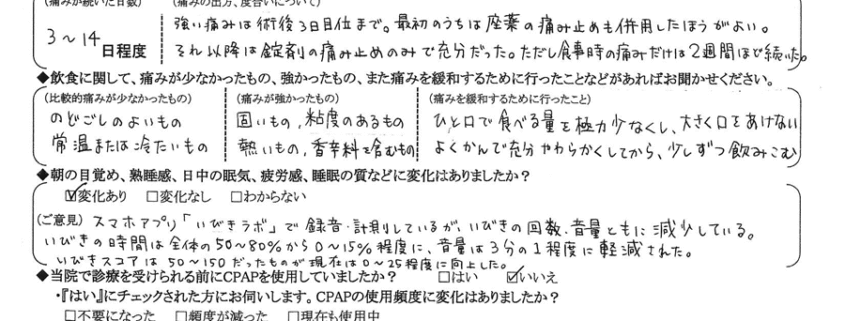 (痛みが続いた日数)
(痛みの出方、度合いについて)
3～14
日程度
強い痛みは術後3日目位まで。最初のうちは座薬の痛み止めも併用したほうがよい。
それ以降は錠剤の痛み止めのみで充分だった。ただし食事時の痛みだけは2週間ほど続いた。
◆飲食に関して、痛みが少なかったもの、強かったもの、また痛みを緩和するために行ったことなどがあればお聞かせください。
(比較的痛みが少なかったもの)
のどごしのよいもの
常温または冷たいもの
(痛みが強かったもの)
固いもの,粘度のあるもの
熱いもの,香辛料を含むもの
(痛みを緩和するために行ったこと)
ひと口で食べる量を極力少なくし、大きく口をあけない
よくかんで充分やわらかくしてから、少しずつ飲みこむ
◆朝の目覚め、熟睡感、日中の眠気、疲労感、睡眠の質などに変化はありましたか？
☑変化あり □変化なし □わからない
(ご意見) スマホアプリ「いびきラボ」で録音・計測しているが、いびきの回数・音量ともに減少している。
いびきの時間は全体の50～80%から0～15%程度に、音量は3分の1程度に軽減された。
いびきスコアは50～150だったものが現在は0～25程度に向上した。
◆当院で診療を受けられる前にCPAPを使用していましたか？ □はい ☑いいえ
・『はい』にチェックされた方にお伺いします。CPAPの使用頻度に変化はありましたか？
□不要になった □頻度が減った □現在も使用中